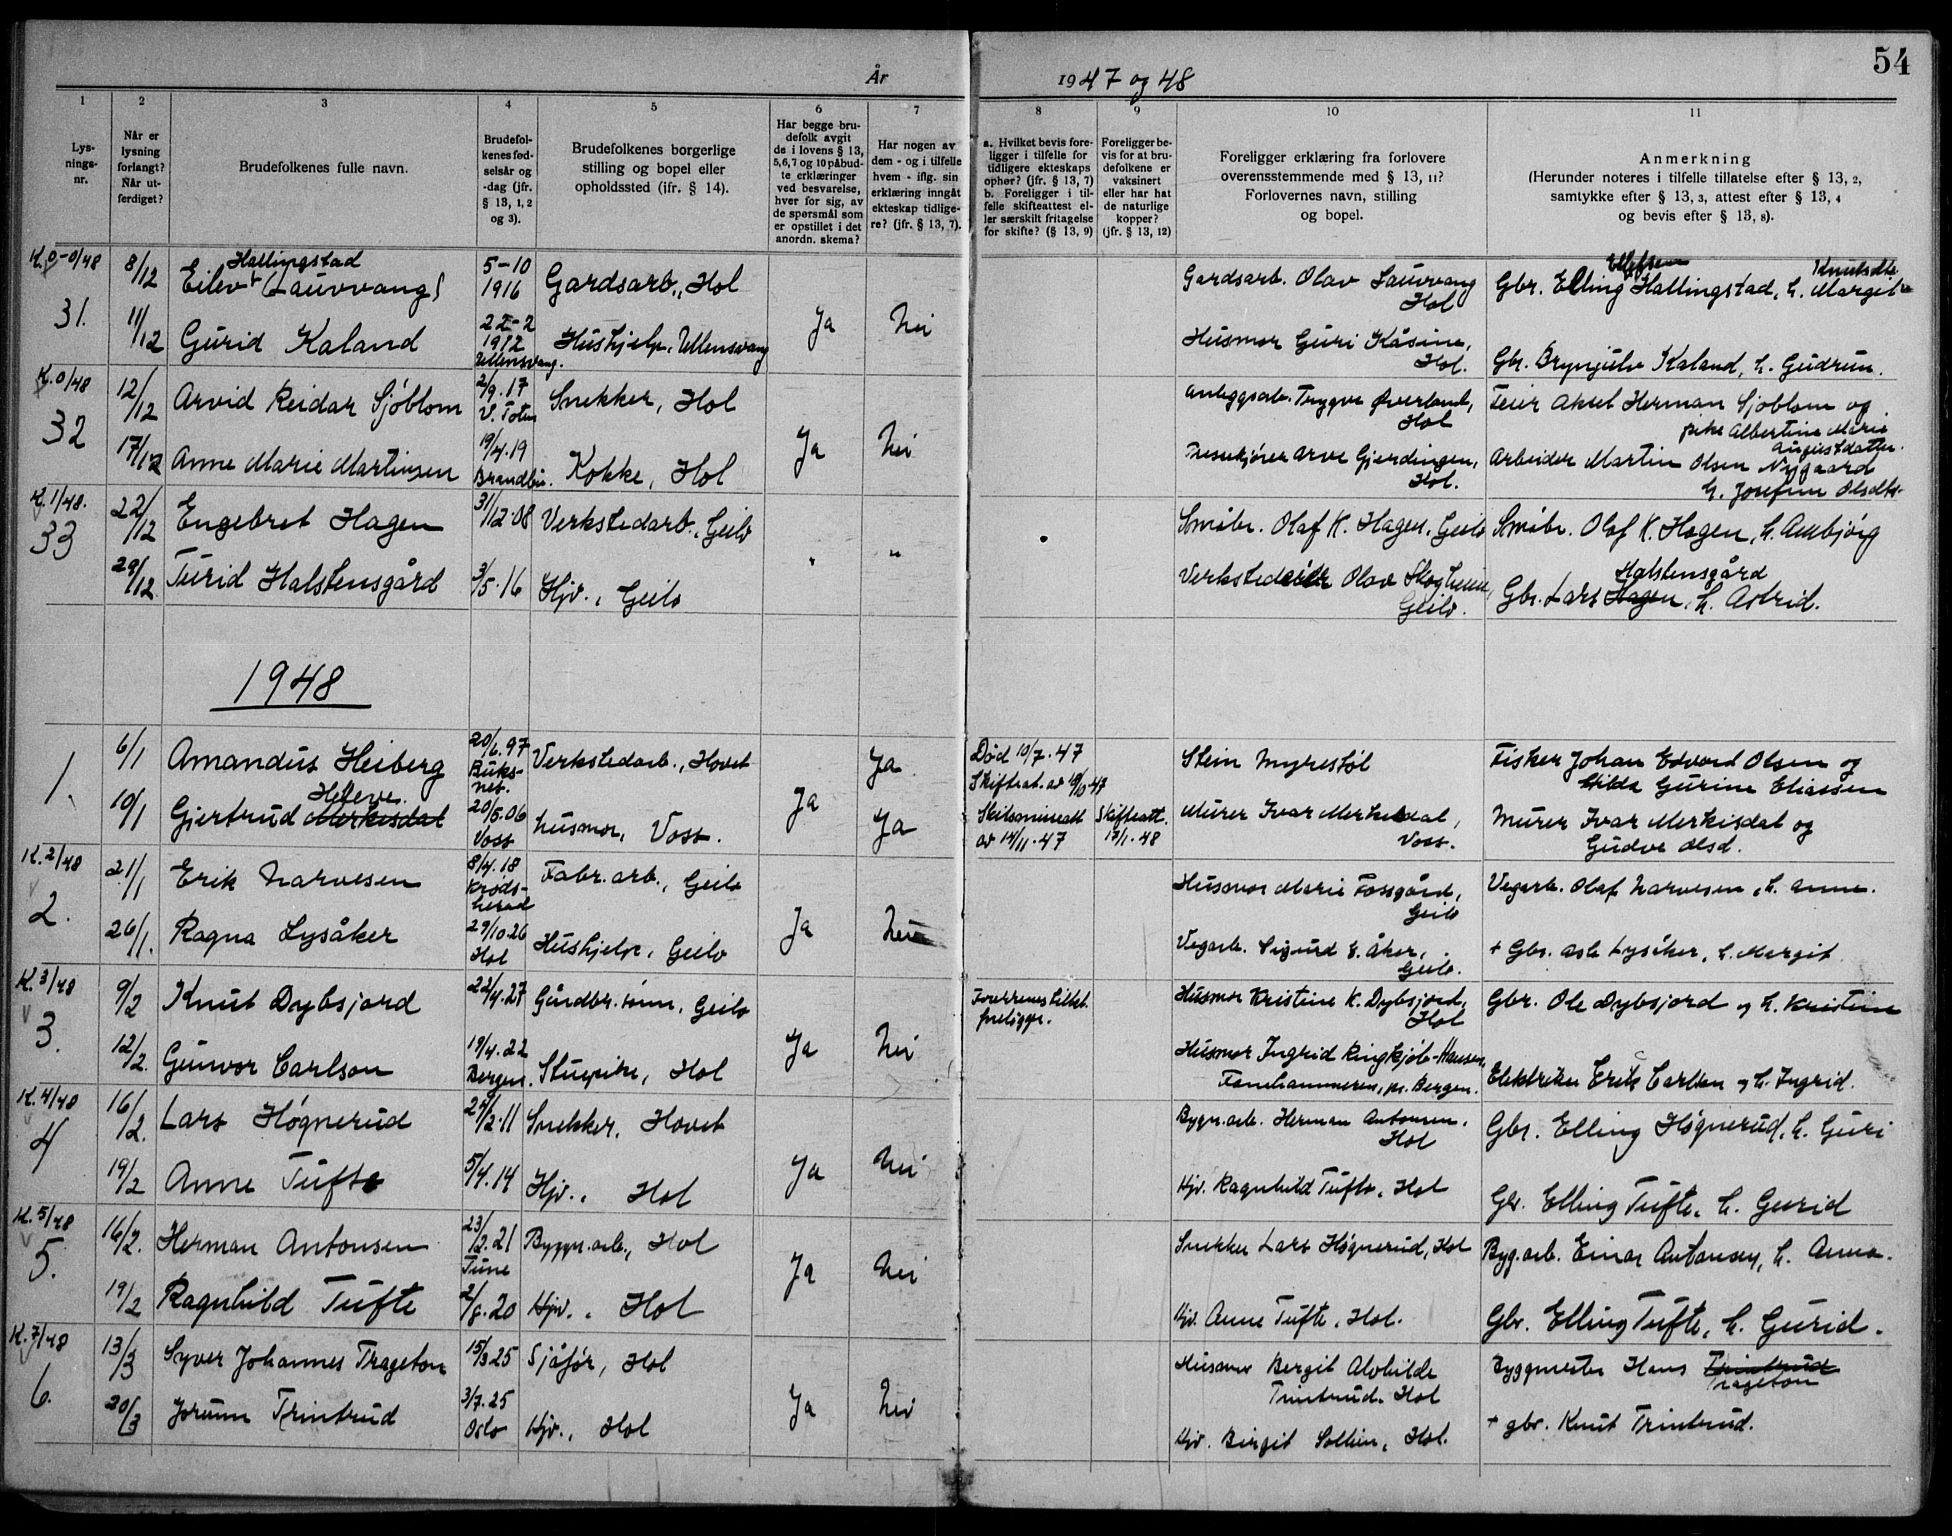 54
År
1947 og 48
1
2
3
4
5
6
7
8
9
10
11
Lys-
nings-
nr.
Når er
lysning
forlangt?
Når ut-
ferdiget?
Brudefolkenes fulle navn.
Brudefol-
kenes fød-
selsår og
-dag (jfr.
§ 13, 1, 2
og 3).
Brudefolkenes borgerlige
stilling og bopel eller
opholdssted (ifr. § 14).
Har begge bru-
defolk avgit
de i lovens § 13,
5,6,7 og 10 påbud-
te erklæringer
ved besvarelse,
hver for sig, av
de spørsmål som
er opstillet i det
anordn. skema?
Har nogen av
dem - og i tilfelle
hvem - iflg. sin
erklæring inngåt
ekteskap tidlige-
re? (jfr. § 13, 7).
a. Hvilket bevis fore-
ligger i tilfelle for
tidligere ekteskaps
ophør? (jfr. § 13, 7)
b. Foreligger i til-
felle skifteattest el-
ler særskilt fritagelse
for skifte? (§ 13, 9)
Foreligger be-
vis for at bru-
defolkene er
vaksinert
eller har hat
de naturlige
kopper?
(jfr. § 13, 12)
Foreligger erklæring fra forlovere
overensstemmende med § 13, 11?
Forlovernes navn, stilling
og bopel.
Anmerkning
(Herunder noteres i tilfelle tillatelse efter § 13, 2,
samtykke efter § 13, 3, attest efter § 13, 4
og bevis efter § 13, 8).
K. 0-0/48
31.
8/12
Hallingstad
Eilev (Lauvvang)
5-10
1916
Gardsarb., Hol
Gardsarb. Olav Lauvvang
Hol
Ellefsen Knutsdtr.
Gbr. Elling Hallingstad, h. Margit
11/12
Gurid Kaland
22-2
1912
Ullensvang.
Hushjelp, Ullensvang
Ja
Nei
Husmor Guri Kåsine,
Hol.
Gbr. Brynjulv Kaland, h. Gudrun.
K. 0/48
32
12/12
Arvid Reidar Sjøblom
2/9.17
V. Toten
Snekker, Hol
Anleggsarb. Trygve Øverland,
Hol
Feier Aksel Herman Sjøblom og
pike Albertine Marie
Augustdatter.
17/12
Anne Marie Martinsen
19/4.19
Brandbu.
Kokke, Hol
Ja
Nei
Arve Gjerdingen,
Hol.
Arbeider Martin Olsen Nygaard
h. Josefine Olsdtr.
K. 1/48.
33
22/12
Engebret Hagen
31/12.08
Verkstedarb., Geilo
Småbr. Olaf K. Hagen, Geilo
Småbr. Olaf K. Hagen, h. Ambjörg
29/12
Turid Halstensgård
3/5.16
Hjv., Geilo
"
"
Olav Skogheim,
Geilo.
Halstensgård
Gbr. Lars Hagen, h. Astrid.
1948
1.
6/1
Amandus Heiberg
20/6.97
Buks-
nes.
Verkstedarb., Hovet
Ja
Død 10/7.47
Stein Myrestøl
Fisker Johan Edvard Olsen og
Hilda Gurine Eliassen
10/1
Heleve.
Gjertrud Merkisdal
20/5.06
Voss
Husmor, Voss.
Ja
Ja
av 14/11.47
Skifteatt.
12/1.48
Murer Ivar Merkisdal,
Voss.
Murer Ivar Merkisdal og
Gudve Olsd.
K. 2/48
2.
21/1
Erik Narvesen
8/4.18
Krøds-
herad
Fabr. arb., Geilo
Husmor Marie Fossgård,
Geilo
Vegarb. Olaf Narvesen, h. Anne.
26/1.
Ragna Lysåker
29/10.26
Hol
Hushjelp, Geilo
Ja
Nei
Vegarb. Sigurd E. Åker,
Geilo.
+ Gbr. Asle Lysåker, h. Margit
K. 3/48
3.
9/2
Knut Dybsjord
22/4.27
Gårdbr. sønn, Geilo
Foreldrenes tillat.
foreligger.
Husmor Kristine K. Dybsjord,
Hol
Gbr. Ole Dybsjord og h. Kristine
12/2.
Gunvor Carlson
19/4.22
Bergen.
Stuepike, Hol
Ja
Nei
Husmor Ingrid Ringkjøb-Hansen,
Fanehammeren, pr. Bergen.
Elektriker Erik Carlson og h. Ingrid.
K. 4/48
4
16/2.
Lars Høgnerud
24/2.11
Snekker, Hovet
Bygn. arb. Herman Antonsen,
Hol
Gbr. Elling Høgnerud, h. Guri
19/2
Anne Tufte
5/4.14
Hjv., Hol
Ja
Nei
Hjv. Ragnhild Tufte, Hol
Gbr. Elling Tufte, h. Gurid
K. 5/48
5.
16/2.
Herman Antonsen
23/12.21
Tune
Byggn. arb., Hol
Snekker Lars Høgnerud, Hol
Byg. arb. Einar Antonsen, h. Anna.
19/2
Ragnhild Tufte
2/8.20
Hjv., Hol
Ja
Nei
Hjv. Anne Tufte, Hol.
Gbr. Elling Tufte, h. Gurid.
K. 7/48
6.
13/3
Syver Johannes Trageton
15/3.25
Sjåfør, Hol
Husmor Bergit Alvhilde
Trintrud. Hol
Byggmester Hans Trintrud
Trageton
20/3
Jorunn Trintrud
3/7.25
Oslo
Hjv., Hol
Ja
Nei
Hjv. Birgit Sollien, Hol.
+ gbr. Knut Trintrud.